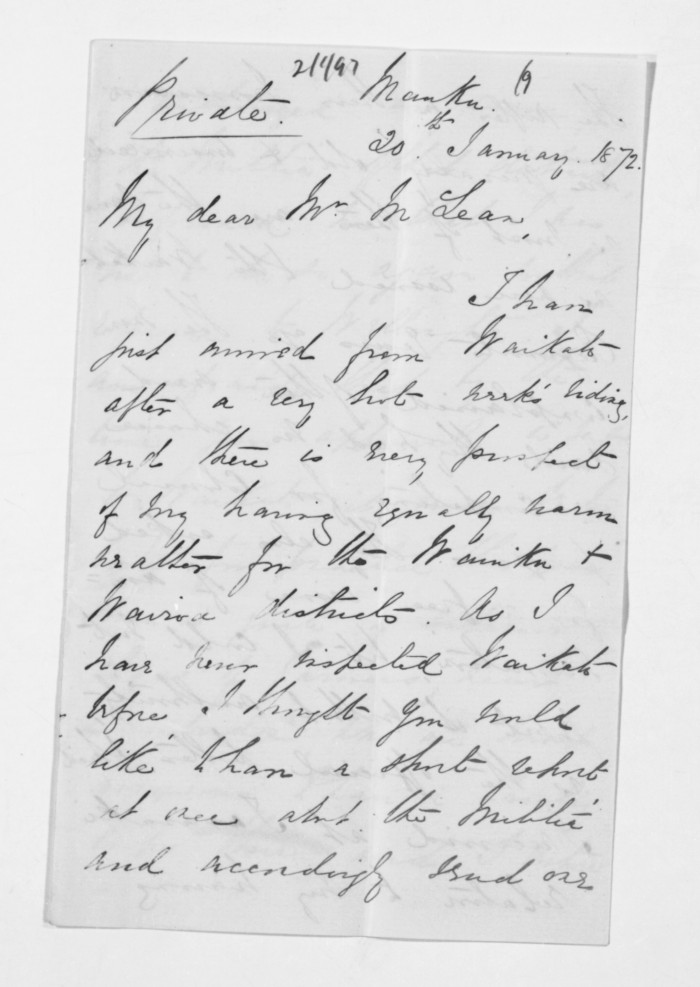 Private.
Mauku.
20th January. 1872.
My dear Mr McLean,
I have
just arrived from Waikato
after a very hot week's riding,
and there is every prospect
of my having equally warm
weather for the Wauku +
Wairoa districts. As I
have never inspected Waikato
before, I thought you would
like to have a short report
at once about the Militia
and accordingly send one